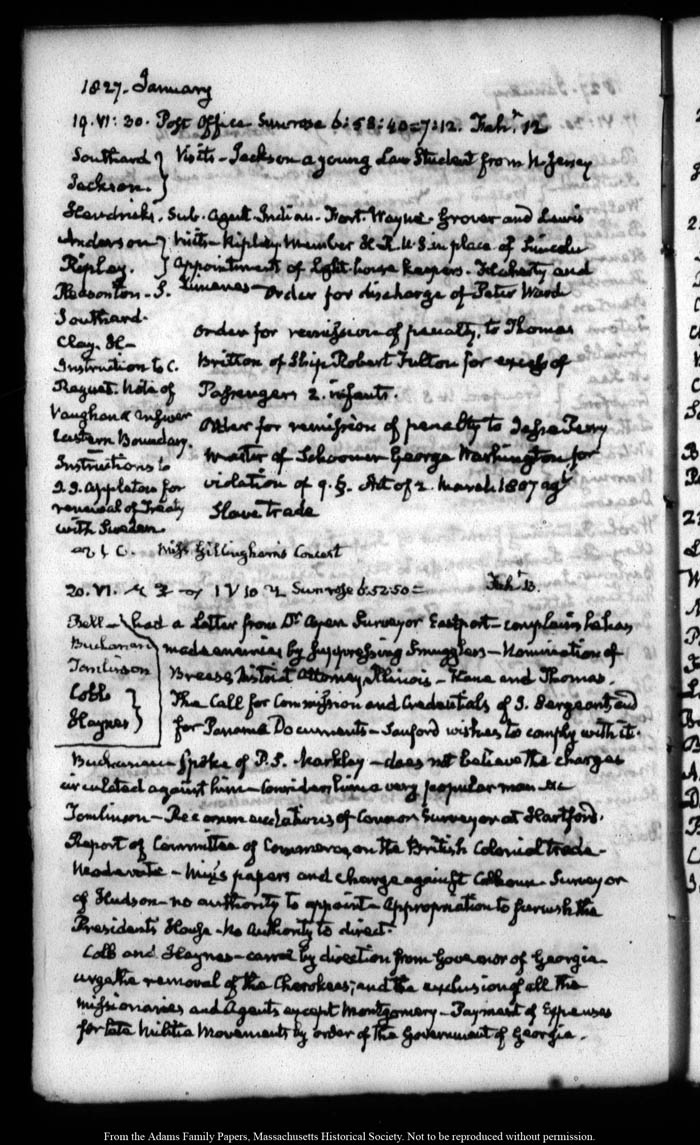 1827. January
19. VI: 30. Post Office Sunrose 6:58:40=7:12. Fahr.t 12
Southard } Visits - Jackson a young Law Student from N. Jersey
Jackson. }
Hendricks. Sub. Agent Indian. Fort Wayne. Grover and Lewis
Anderson } Visits - Ripley Member H.R.U.S in place of Lincoln
Ripley. } Appointment of Light-house keepers. Flaherty and
S. Limanes - Order for discharge of Peter Ward
Southard.
Clay. H-
Instruction to C.
Raguet. Note of
Vaughan & Answer
Eastern Boundary.
Instructions to
J. J. Appleton for
renewal of Treaty
with Sweden.
Order for remission of penalty, to Thomas
Britton of Ship Robert Fulton for excess of
Passengers 2. infants.
Order for remission of penalty to Jesse Perry
Master of Schooner George Washington for
violation of 9. §. Act of 2. March 1807 agt
Slave trade
Miss Gillingham's Concert
20. VI. Sunrose 6:52:50= Fahr.t 13.
Bell - had a Letter from Dr. Ayer Surveyor Eastport - complains he has
Buchanan made enemies by suppressing Smugglers - Nomination of
Tomlinson Breese District Attorney, Illinois - Kane and Thomas.
Cobb } The Call for Commission and Credentials of J. Sergeant, and
Haynes } for Panama Documents - Sanford wishes to comply with it.
Buchanan spoke of P. S. Markley - does not believe the charges
circulated against him - Considers him a very popular man &c
Tomlinson - Recommendations of Connor Surveyor at Hartford.
Report of Committee of Commerce, on the British Colonial trade -
No debate - Mix's papers and charge against Calhoun - Surveyor
of Hudson - no authority to appoint - Appropriation to furnish the
Presidents House - No Authority to direct.
Cobb and Haynes - came by direction from Governor of Georgia
urge the removal of the Cherokees; and the exclusion of all the
missionaries and Agents except Montgomery - Payment of Expenses
for late Militia Movements by order of the Government of Georgia.
From the Adams Family Papers, Massachusetts Historical Society. Not to be reproduced without permission.